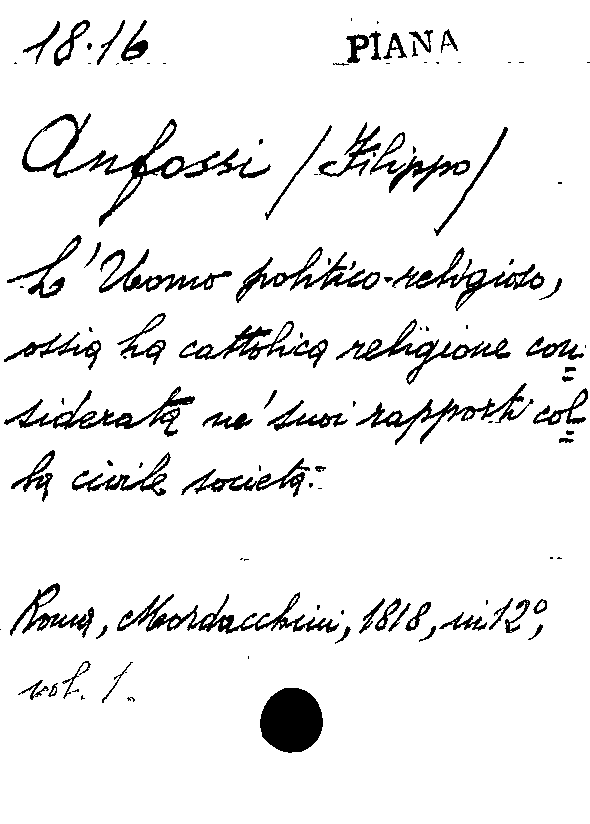 18.16 PIANA
Anfossi (Filippo)
L'Uomo politico-religioso,
ossia la cattolica religione con=
siderata ne' suoi rapporti col=
la civile società.
Roma, Mordacchini, 1818, in 12°,
vol. 1.